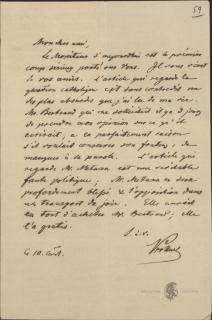 59
Mon cher ami,
Le Moniteur d'aujourd'hui est le premier
coup sérieux porté par vous. Il vous vient
de vos amis. L'article qui regarde la
question catholique est sans contredit un
des plus absurdes que j'ai lu de ma vie.
Mr. Bertrand qui me sollicitait il y a 3 jours
de prendre mon opinion sur ce qu'il
écrivait, a eu parfaitement raison
s'il voulait conserver son, de
manquer à sa parole. L'article qui
regarde Mr. est une véritable
faute politique; Mr. a
profondément blessé & l'opposition dans
un transport de joie. Elle aurait
eu tort d'acheter Mr. Bertrand; Elle
l'a gratis.
t. à v.
Le 10 août.